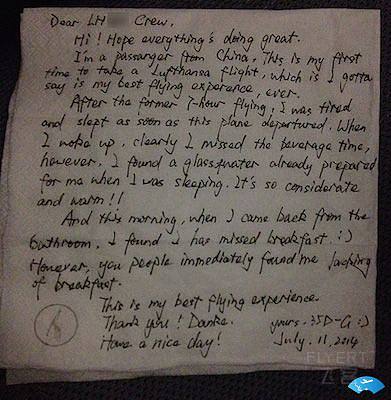 Dear LH Crew,
Hi! Hope everything's doing great.
I'm a passanger from China. This is my first
time to take a Lufthansa flight, which is I gotta
say is my best flying experence, ever.
After the former 7-hour flying, I was tired
and slept as soon as this plane departured. When
I woke up, clearly I missed the beverage time,
however, I found a glass of water already prepared
for me when I was sleeping. It's so considerate
and warm!!
And this morning, when I came back from the
bathroom, I found I has missed breakfast. :)
However, you people immediately found me lacking
of breakfast.
This is my best flying experience.
Thank you! Danke. yours. 35D-G :)
Have a nice day! July. 11, 2014
FLYERT